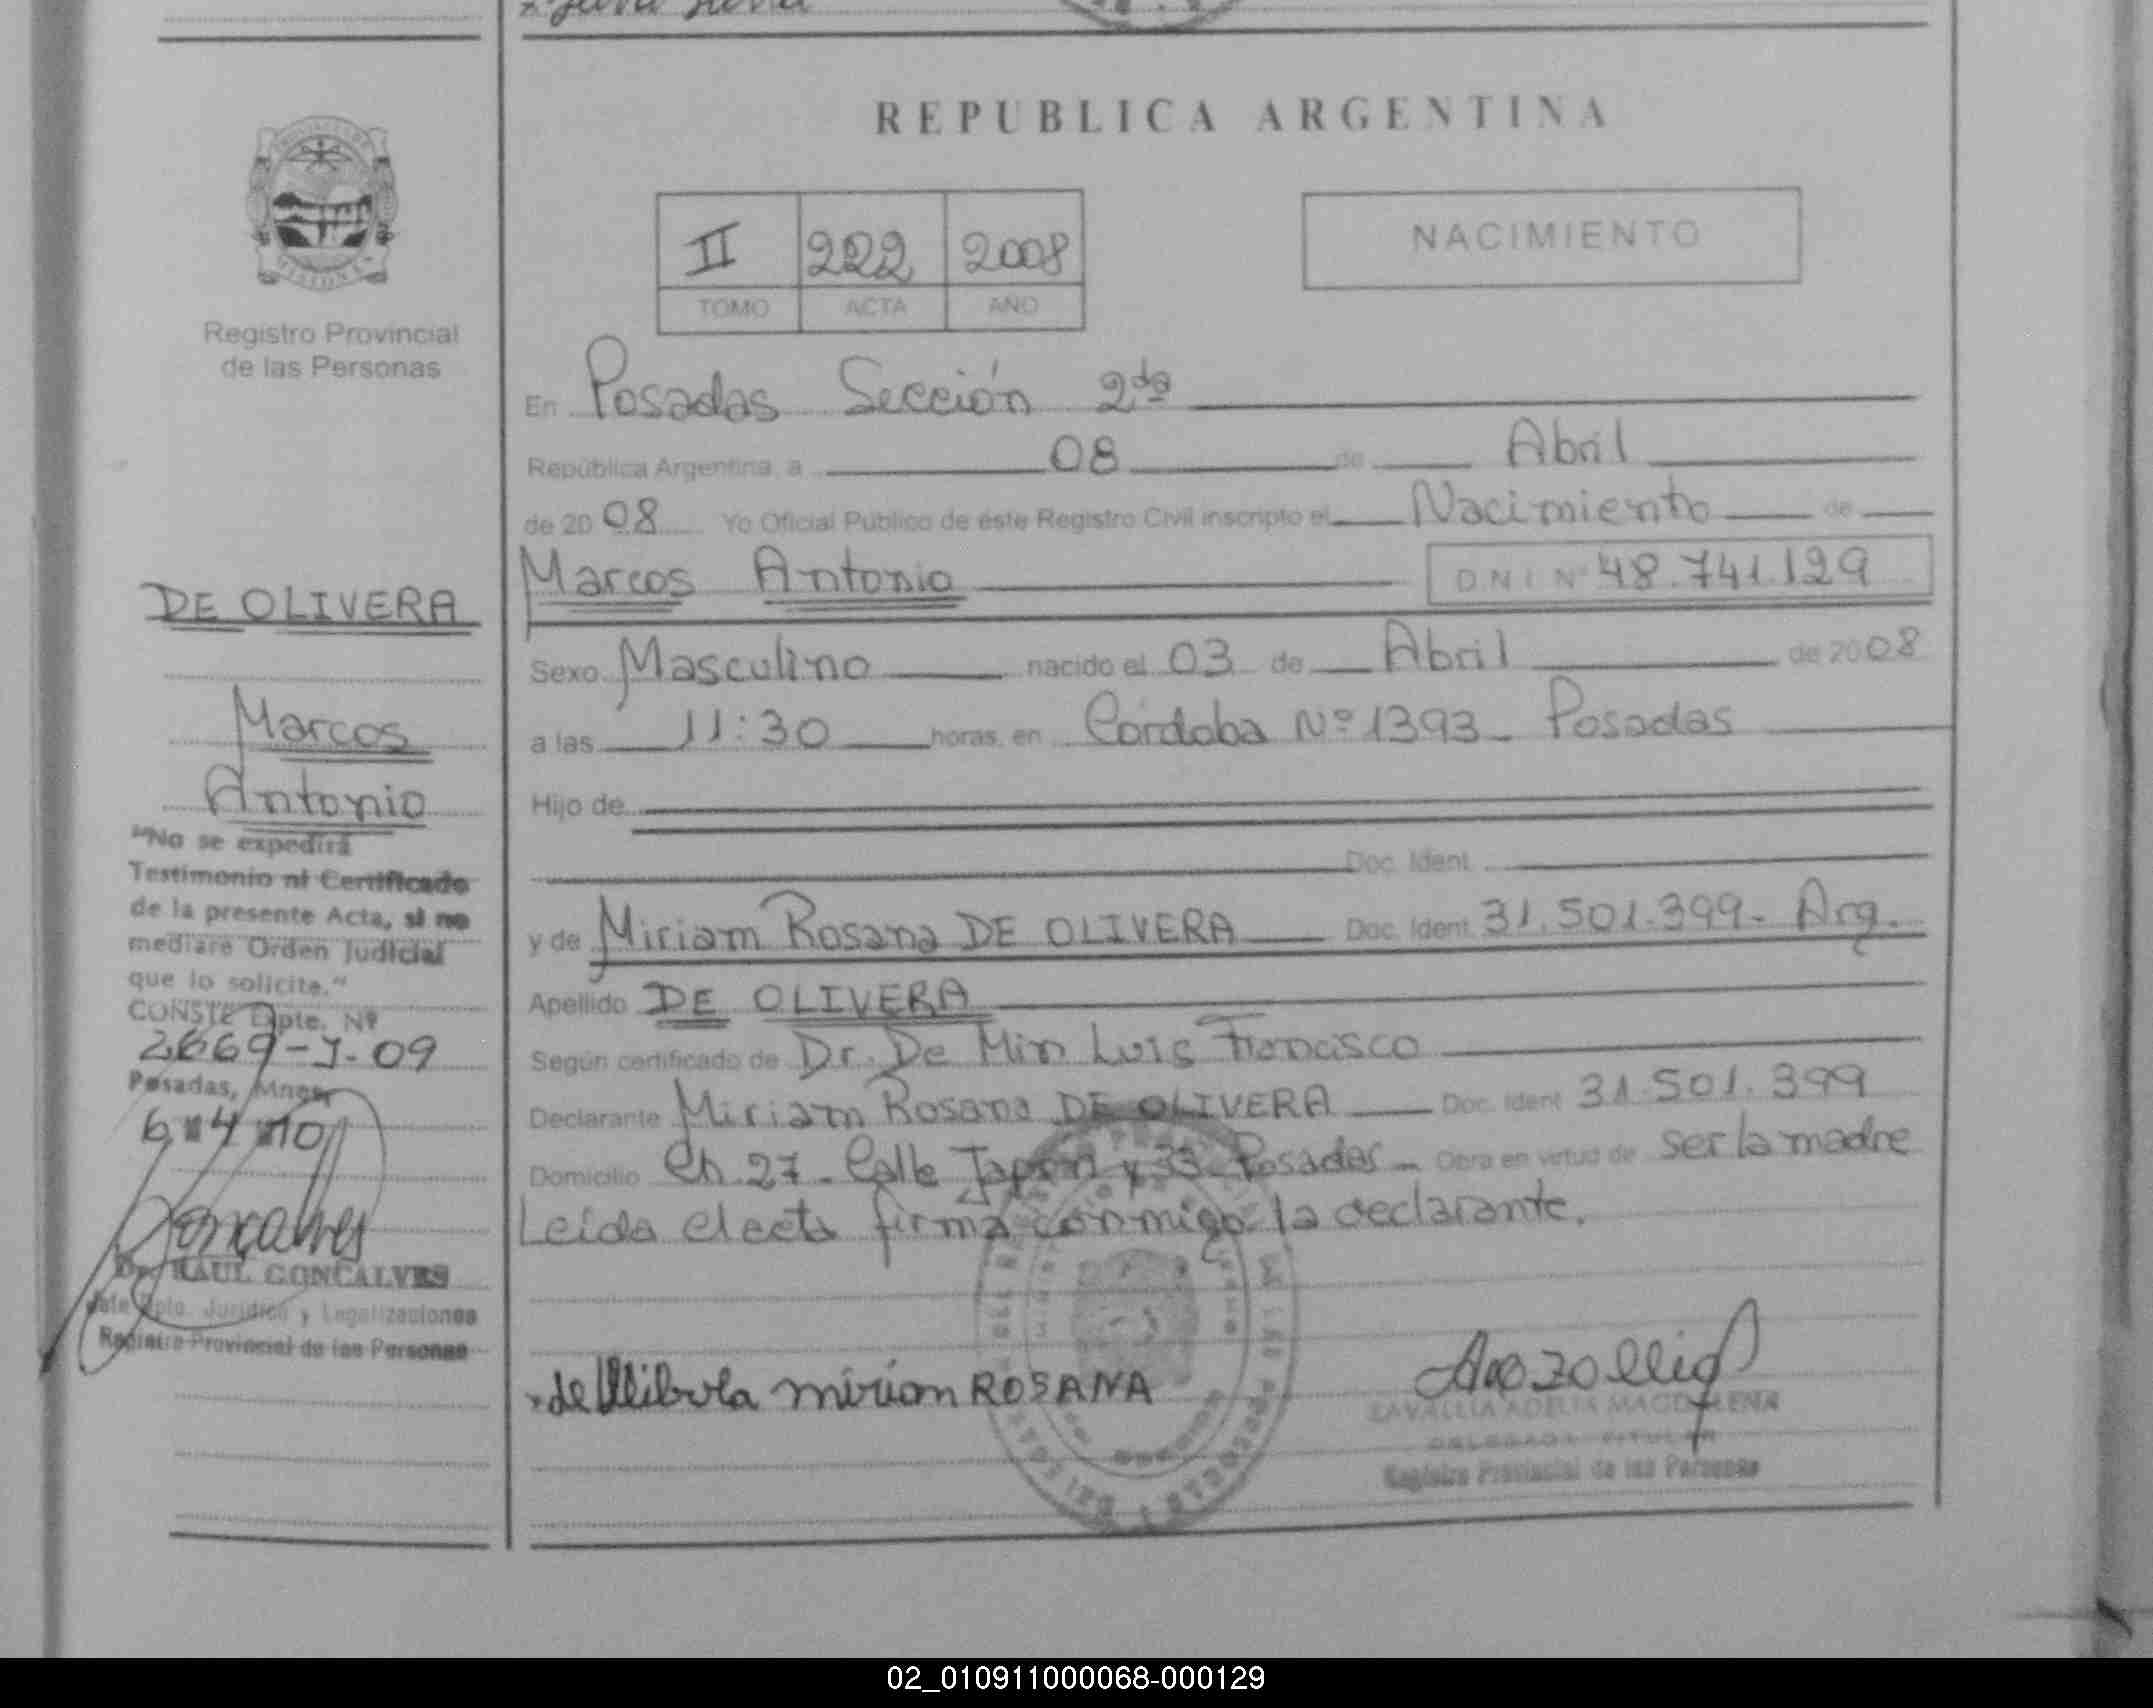 REPUBLICA ARGENTINA
NACIMIENTO
II 222 2008
TOMO ACTA AÑO
Registro Provincial
de las Personas
En Posadas Sección 2da
República Argentina, a 08 de Abril
de 2008 Yo Oficial Público de éste Registro Civil inscripto el Nacimiento de
Marcos Antonio D.N.I. Nº 48.741.129
Sexo Masculino nacido el 03 de Abril de 2008
a las 11:30 horas, en Córdoba Nº 1393 - Posadas
Hijo de
Doc. Ident.
y de Miriam Rosana DE OLIVERA Doc. Ident. 31.501.399- Arg.
Apellido DE OLIVERA
Según certificado de Dr. De Min Luis Francisco
Declarante Miriam Rosana DE OLIVERA Doc. Ident 31.501.399
Domicilio Ch. 27 - Calle Japón y 33 - Posadas - Obra en virtud de ser la madre
Leida el acta firma conmigo la declarante.
DE OLIVERA
Marcos
Antonio
"No se expedirá
Testimonio ni Certificado
de la presente Acta, si no
mediare Orden Judicial
que lo solicite."
CONSTE Epte. Nº
2669-J-09
Posadas, Mnes,
6 4 10
Goncalves
Dr. RAUL GONCALVES
Jefe Dpto. Jurídico y Legalizaciones
Registro Provincial de las Personas
miriam ROSANA
ZAVALLIA ADELIA MAGDALENA
DELEGADA TITULAR
Registro Provincial de las Personas
02_010911000068-000129